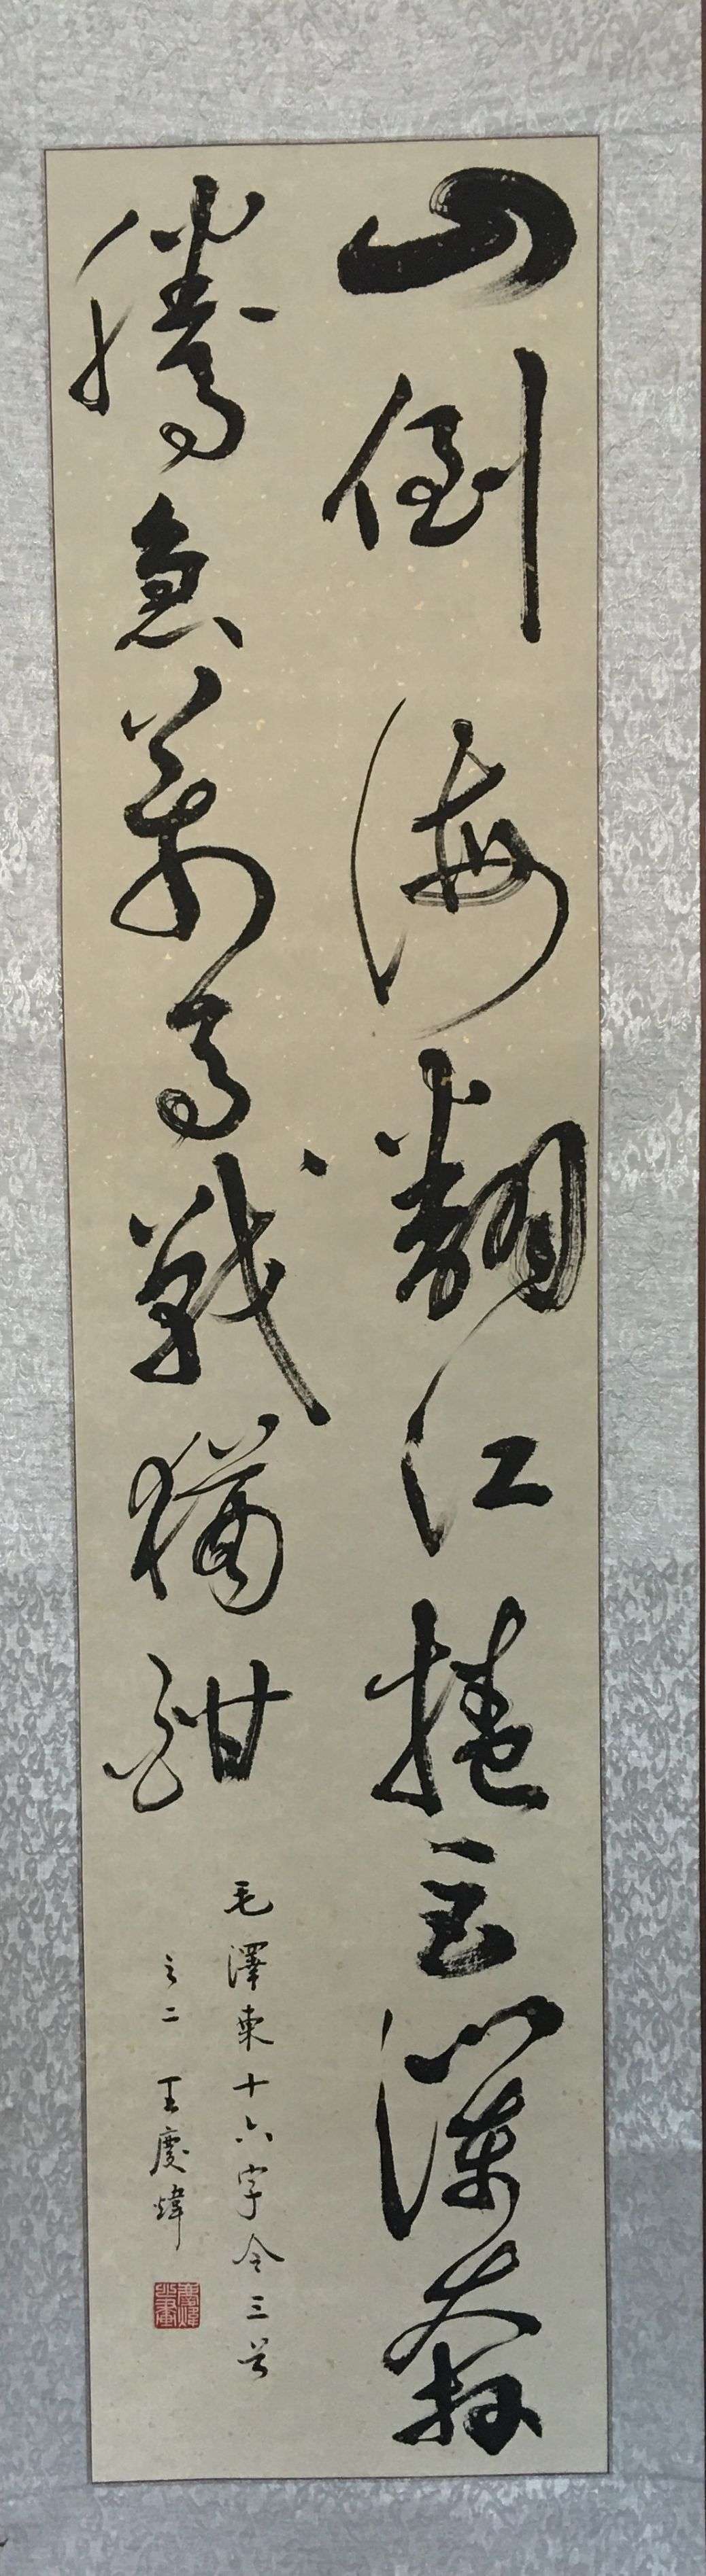 山倒海翻江捲巨瀾奔
騰急萬馬戰猶酣
毛澤東十六字令三首
之二 王慶煒
慶煒